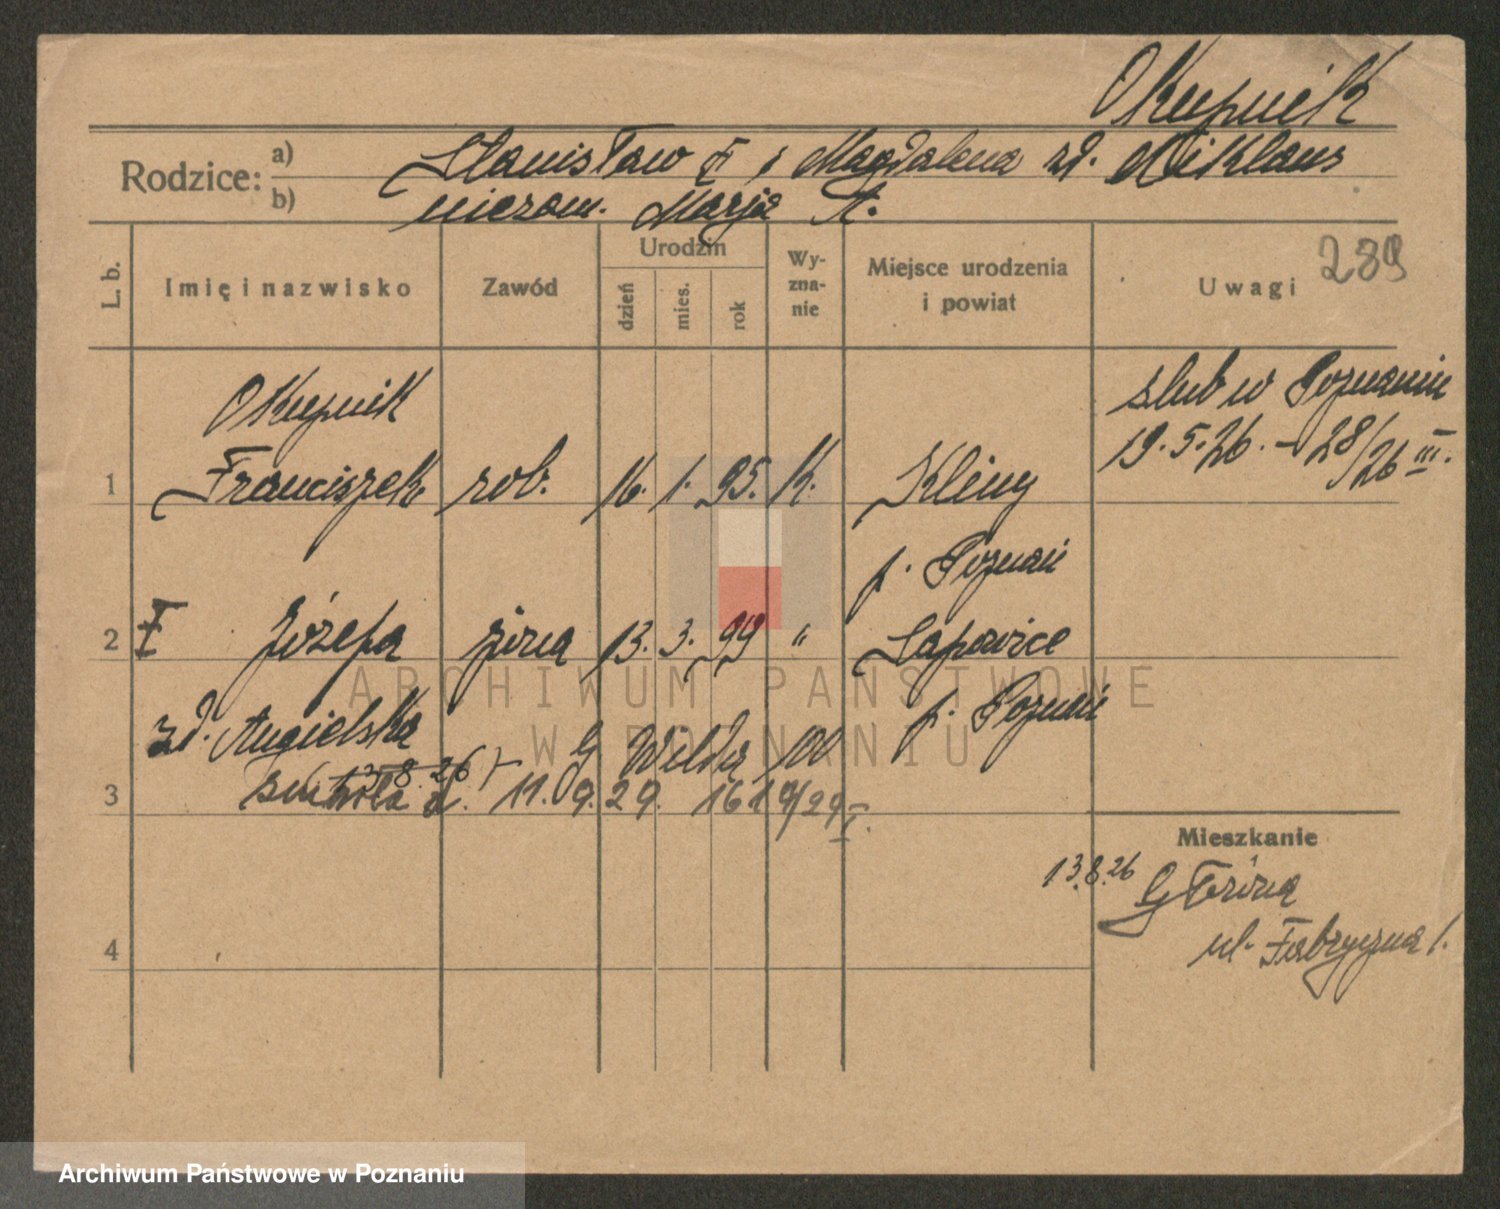 Okupnik
Rodzice: a) Stanisław i Magdalena zd. Miklaus
b) niezam. Marja A.
289
L. b. Imię i nazwisko Zawód Urodzin dzień mies. rok Wyznanie Miejsce urodzenia i powiat Uwagi
Okupnik
slub w Poznaniu
1 Franciszek rob. 16. 1. 95. K. Kliny
19.5.26. - 28/26 III.
p. Poznań
2 Józefa żona 13. 3. 99 " Sapowice
zd. Angielska p. Poznań
G Wilda 100
13.8.26
3 11. 9. 29. 1619/29 I.
Mieszkanie
13.8.26 Główna
ul. Fabryczna 1.
4
ARCHIWUM PAŃSTWOWE
W POZNANIU
Archiwum Państwowe w Poznaniu